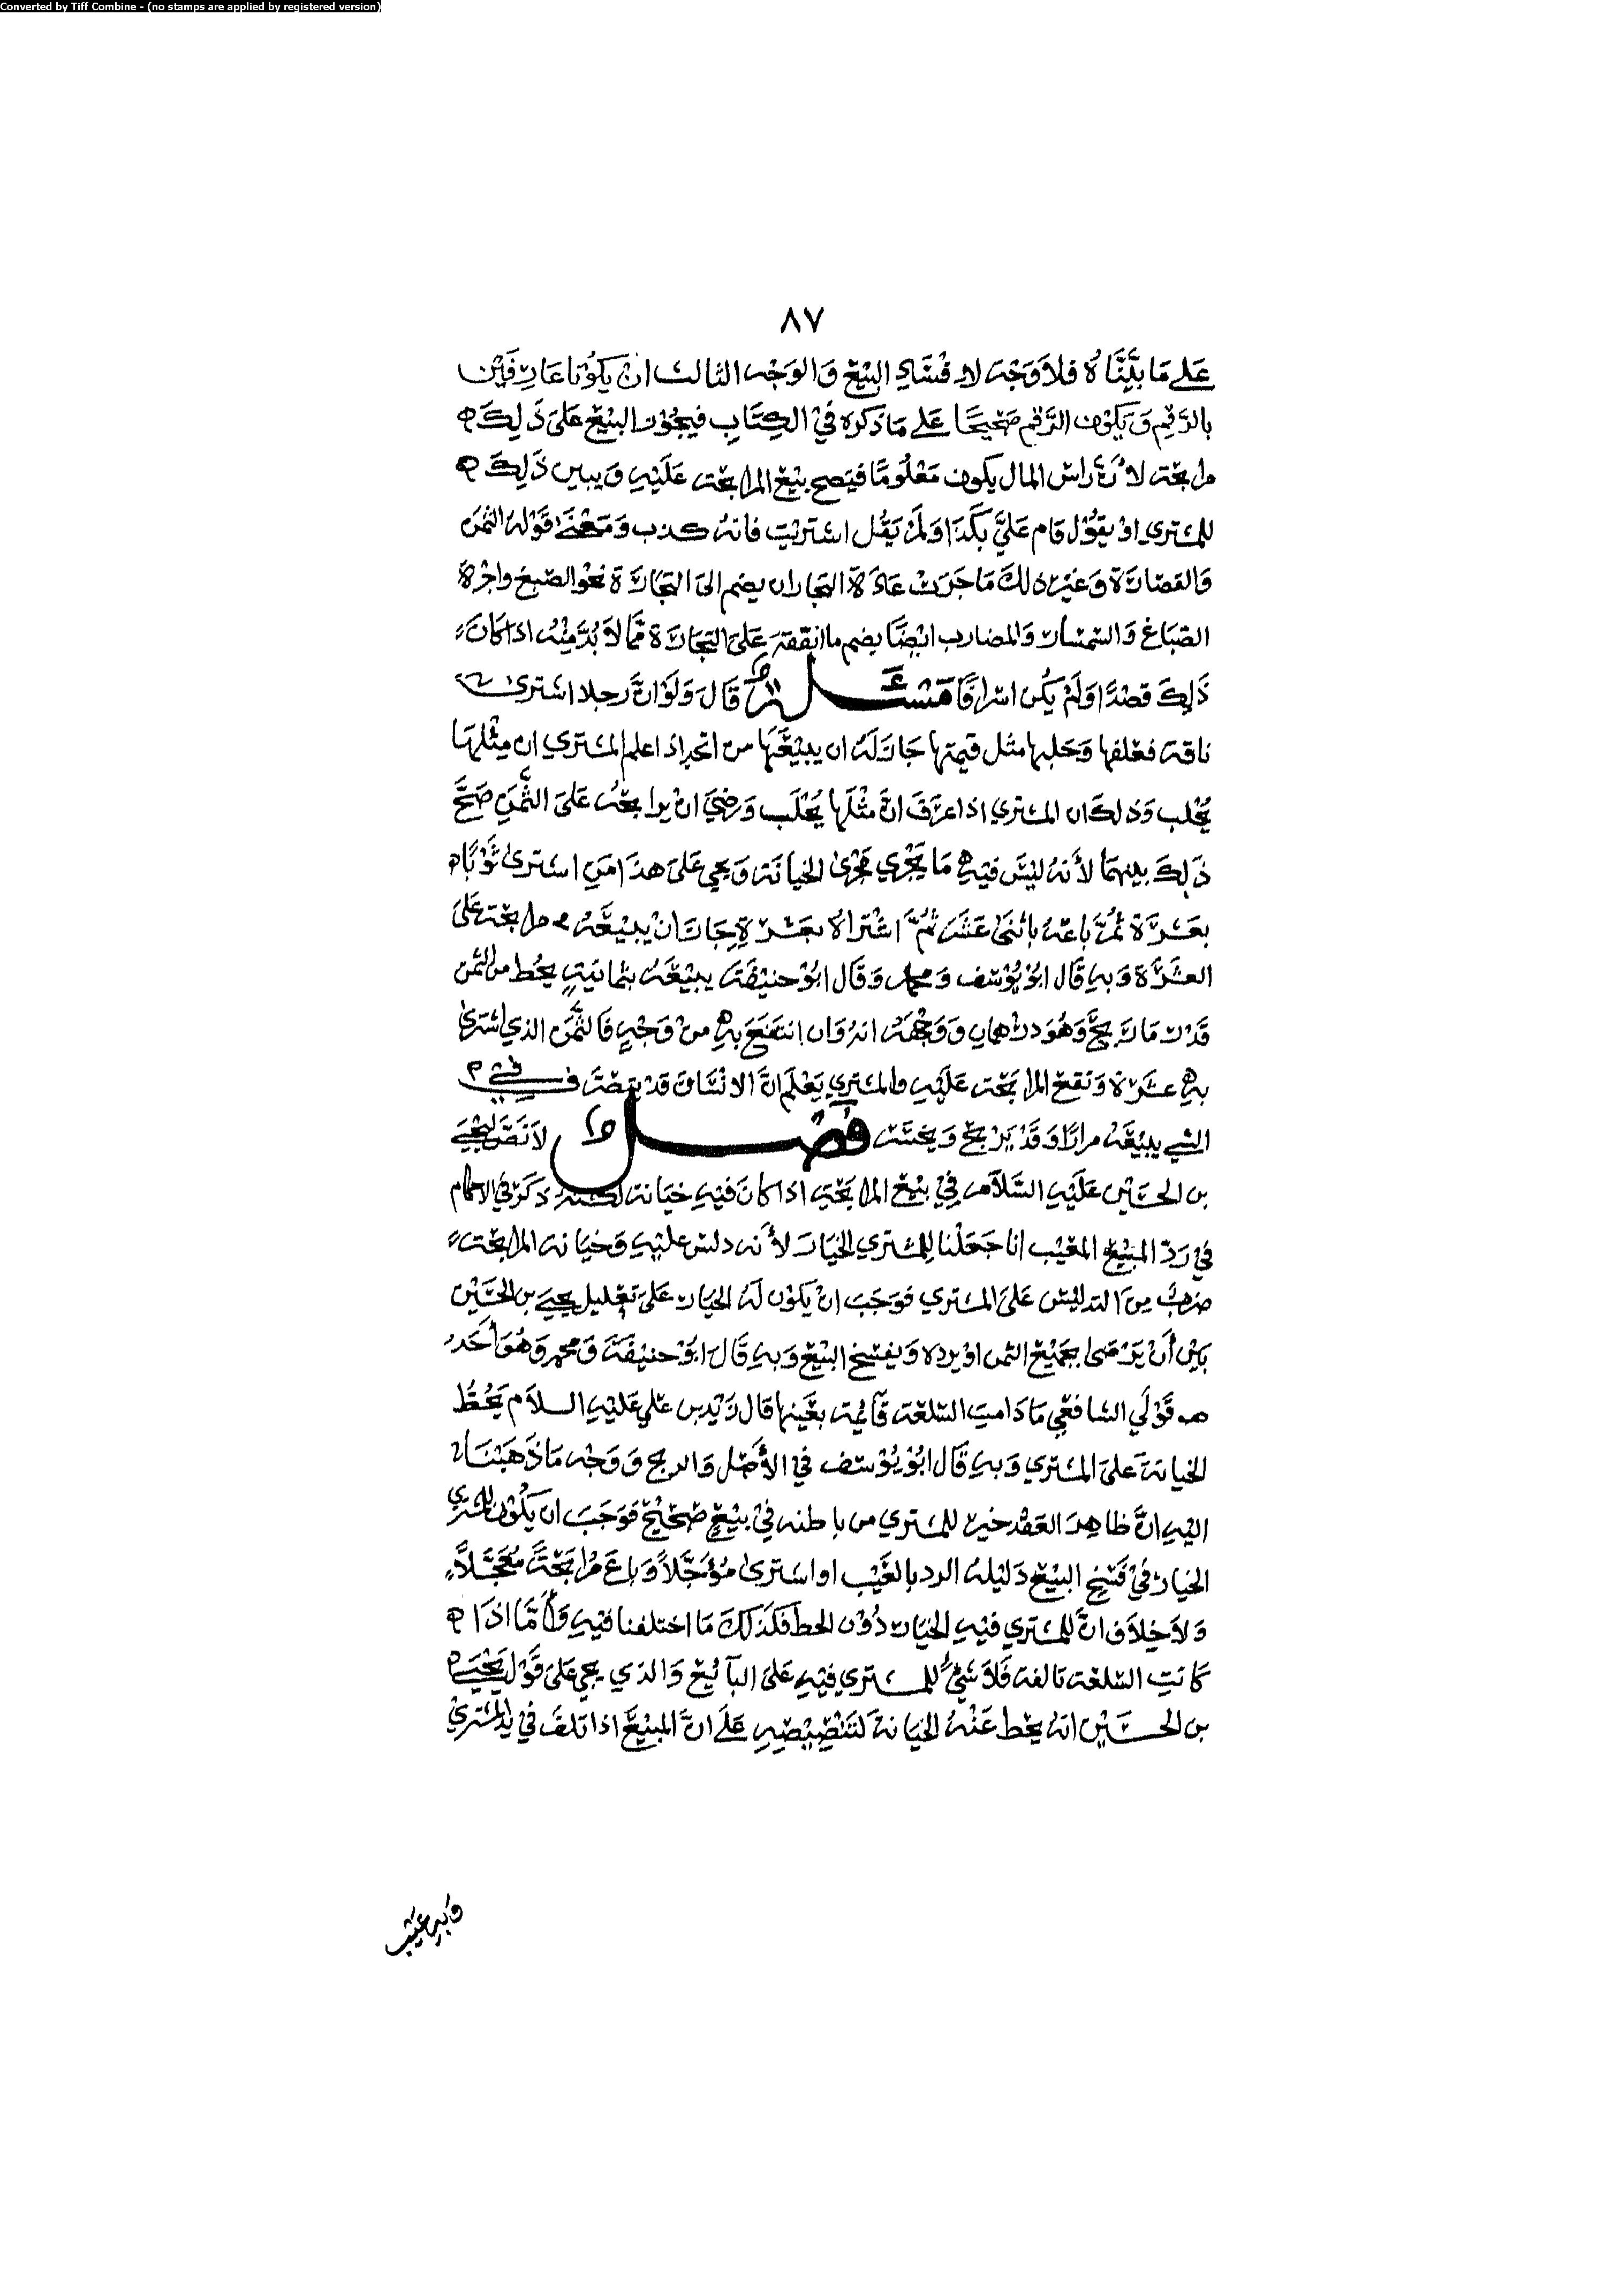 Converted by Tiff Combine - (no stamps are applied by registered version)
٨٧
عَلى مَا بيَّنَّاهُ فلا وَجْه لإفسَادِ البَيْع وَالوَجْه الثالث انْ يكوُنا عَارِفَيْن
بالرَّقم وَيكون الرَّقم صَحيحًا عَلى مَا ذكره في الكِتَابِ فيجوُز البَيْع عَلى ذَلِكَ
مرابحة لأنَّ راس المال يكون مَعْلُومًا فيَصح بَيْع المرابحة عَلَيْهِ ويبين ذَلِكَ
للمشتري او يقوُل قام عَليَّ بكَذَا وَلمْ يَقُل اشتريت فانهُ كذب وَمَعْنَى قَوْلهُ الثمَن
وَالقصَارَة وَغيْر ذلكَ مَا جَرَتْ عَادَة التجار ان يضم الى التجَارَة نحْو الصبغ واجْرة
الصّبَاغ وَالسّمْسَار وَالمضارب ايْضًا يضم ما انفقهَ عَلى التجَارَة مِمَّا لاَ بُدَّ مِنْهُ اذا كانَ
ذَلِكَ قصْدًا وَلَمْ يَكُن اسْرافًا مَسْئَلَة قَالَ وَلَوْ انَّ رَجلا اشترى
ناقة فعَلفها وَحَلبها مثل قيمَتها جَازَ لَهُ ان يبيْعَهَا مرابحة اذا علم المشتري ان مِثْلها
يحْلب وَذلكَ ان المشتري اذا عرَفَ انَّ مثْلَها يُحْلَب وَرضيَ انْ يرابحَهُ عَلى الثَّمَنِ صَحَّ
ذَلِكَ بينهمَا لأنهُ ليْسَ فيْهِ مَا يَجْري مَجْرى الخيَانَة وَيجي عَلى هذا مَنِ اشترى ثَوْبًا
بعَشَرَة ثُمَّ باعَهُ باثنى عَشَر ثُمَّ اشْتراهُ بعَشرَةٍ جَازَ انْ يبيْعَهُ مرابحة عَلى
العَشَرَة وَبهِ قَال ابوُ يوُسُف ومحمد وَقَال ابوُ حنيْفَة يبيْعَهُ بثمانيَةٍ يحُط من الثمن
قَدْر مَا رَبحَ وَهُوَ درْهمان وَوَجْهَهُ انهُ وَان انتفعَ بهِ منْ وَجْهٍ فَالثَّمَن الذي اشترى
بهِ عشرَة وَتقع المرابَحة عَليْهِ والمشتري يَعْلم انَّ الانْسَان قد ينقصَ في
الشي يبيْعَهُ مرارًا وَقَدْ يَرْبح وَيخسَر فَصْل لاَ نَصّ ليَحْيَى
بن الحسَيْن عَليْهِ السَّلاَم في بَيْع المرابَحَة اذا كانَ فيْهِ خيَانة لكنهُ ذكرَ في الاحكام
في رَدّ المبيْع المعْيب انا جَعَلْنا للمُشتري الخيَارَ لأنه دلس عليْهِ وَخيَانة المرابحَة
ضربٌ مِنَ التدليْس عَلى المشتري فوَجَبَ انْ يكوْن لهُ الخيَار عَلى تعْليل يحيَى بن الحسَيْن
بيْن أنْ يَرْضى بجمَيْع الثمن اوْ يرده وَيفسَخ البَيْع وَبهِ قَالَ ابوْ حنيْفَة وَمحمد وَهُوَ أَحَدُ
قَوْلَي الشافعي مَا دَامت السّلْعَة قآئمة بعَيْنها قال زَيْد بن عَلي عَليْهِ السلاَم يَحُطُّ
الخيَانةَ عَلى المشتري وَبهِ قَال ابوُ يوُسُف في الأَصْل وَالربح وَوَجْه مَا ذَهَبْنَا
اليْهِ انَّ ظاهِرَ العَقْد خيْر للمشتري من باطنه في بيْعٍ صَحيْح فوَجَبَ ان يَكُوْن للمشتري
الخيَار في فسْخِ البَيْع دَليْلهُ الرد بالعَيْب او اشترى مُؤَجَّلاً وَباعَ مُرَابَحَةً مُعَجَّلاً
وَلاَ خلاَف انَّ للمشتري فيْهِ الخيَار دُوْن الحط فكَذلكَ مَا اختلفنا فيْهِ وَأمَّا اذَا
كَانَتِ السّلعَة تالفة فَلاَ شَيْءَ للمشتري فيْهِ عَلى البآئع وَالذي يجي عَلى قَوْل يَحْيَى
بن الحسَيْن انهُ يحط عَنْهُ الخيَانةَ لتَنْصيْصِهِ عَلى انَّ المبيْعَ اذا تلفَ في يد المشتري
وَبهِ عَيْب